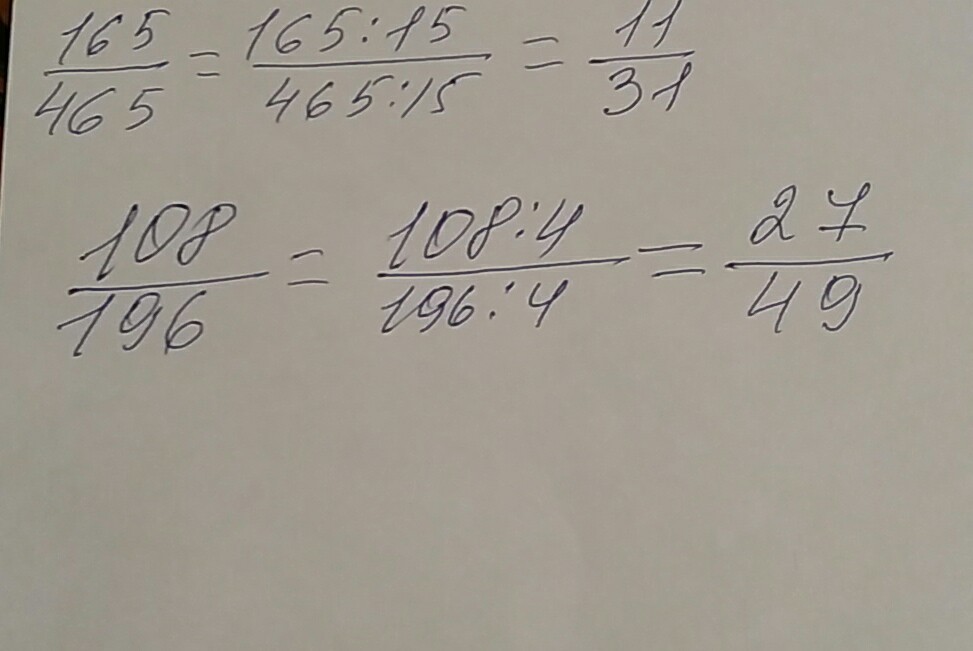 165/465 = 165:15/465:15 = 11/31
108/196 = 108:4/196:4 = 27/49